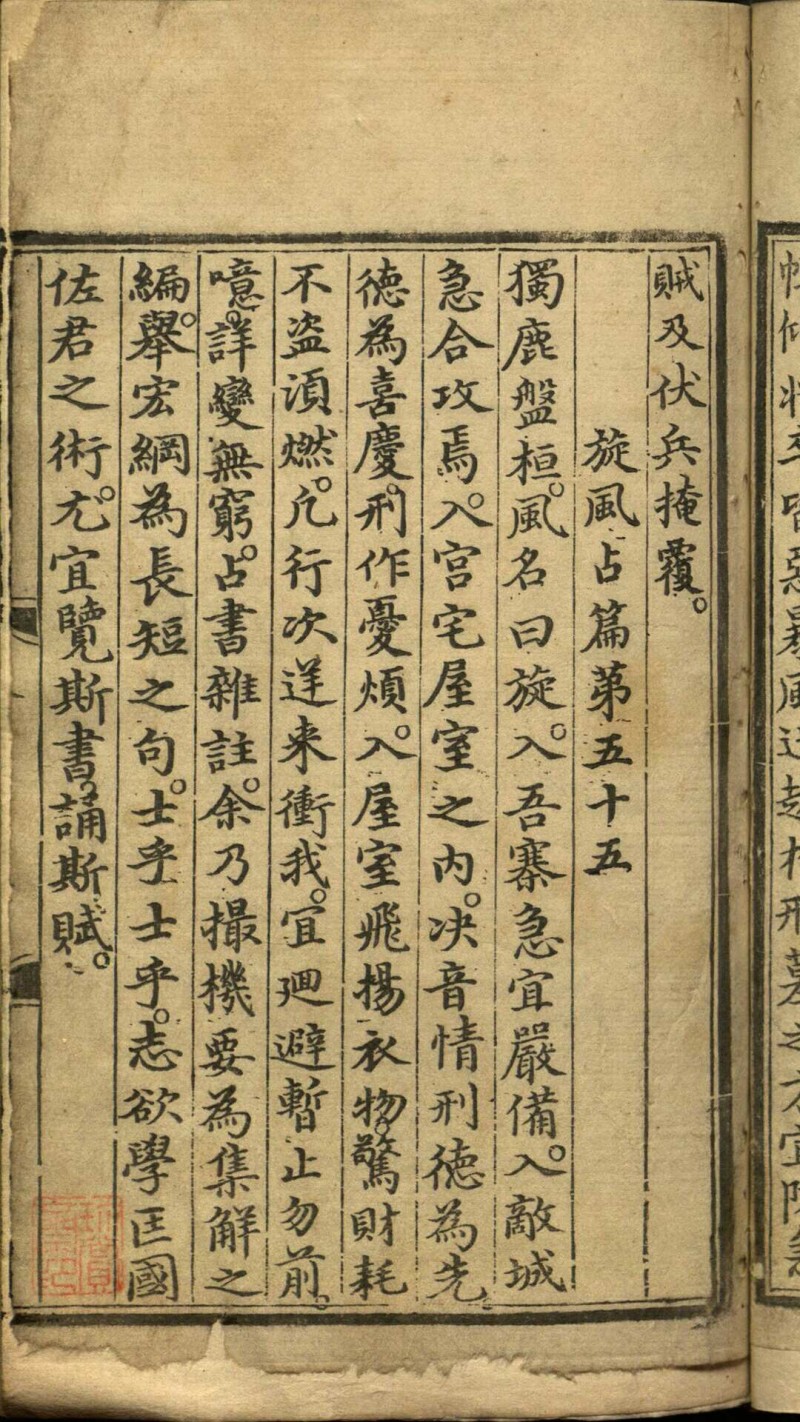 賊及伏兵掩覆。
旋風占篇第五十五
獨鹿盤桓。風名曰旋。入吾寨急宜嚴備。入敵城
急合攻焉。入宮宅屋室之内。决音情刑徳為先
徳為喜慶。刑作憂煩。入屋室飛揚衣物。驚財耗
不盗湏燃。凢行次逆来衝我。宜廻避暫止勿前。
噫。詳變無窮。占書雜註。余乃撮機要為集觧之
編。舉宏綱為長短之句。士乎士乎。志欲學匡國
佐君之術。尤宜覽斯書誦斯賦。